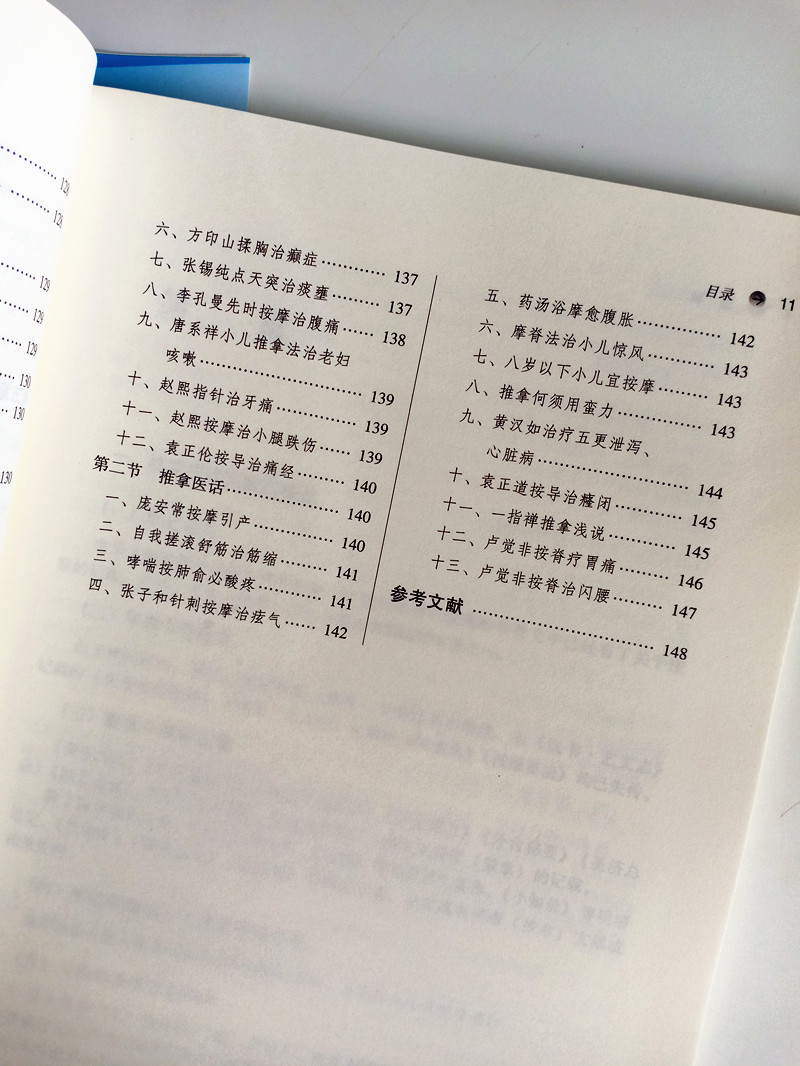 128
128
129
129
129
130
130
130
目录 11
六、方印山揉胸治癫症…………137
七、张锡纯点天突治痰壅………137
八、李孔曼先时按摩治腹痛……138
九、唐系祥小儿推拿法治老妇
咳嗽………………………………139
十、赵熙指针治牙痛……………139
十一、赵熙按摩治小腿跌伤……139
十二、袁正伦按导治痛经………140
第二节 推拿医话…………………140
一、庞安常按摩引产……………140
二、自我搓滚舒筋治筋缩………141
三、哮喘按肺俞必酸疼…………141
四、张子和针刺按摩治痃气……142
五、药汤浴摩愈腹胀……………142
六、摩脊法治小儿惊风…………143
七、八岁以下小儿宜按摩………143
八、推拿何须用蛮力……………143
九、黄汉如治疗五更泄泻、
心脏病……………………………144
十、袁正道按导治癃闭…………145
十一、一指禅推拿浅说…………145
十二、卢觉非按脊疗胃痛………146
十三、卢觉非按脊治闪腰………147
参考文献……………………………148